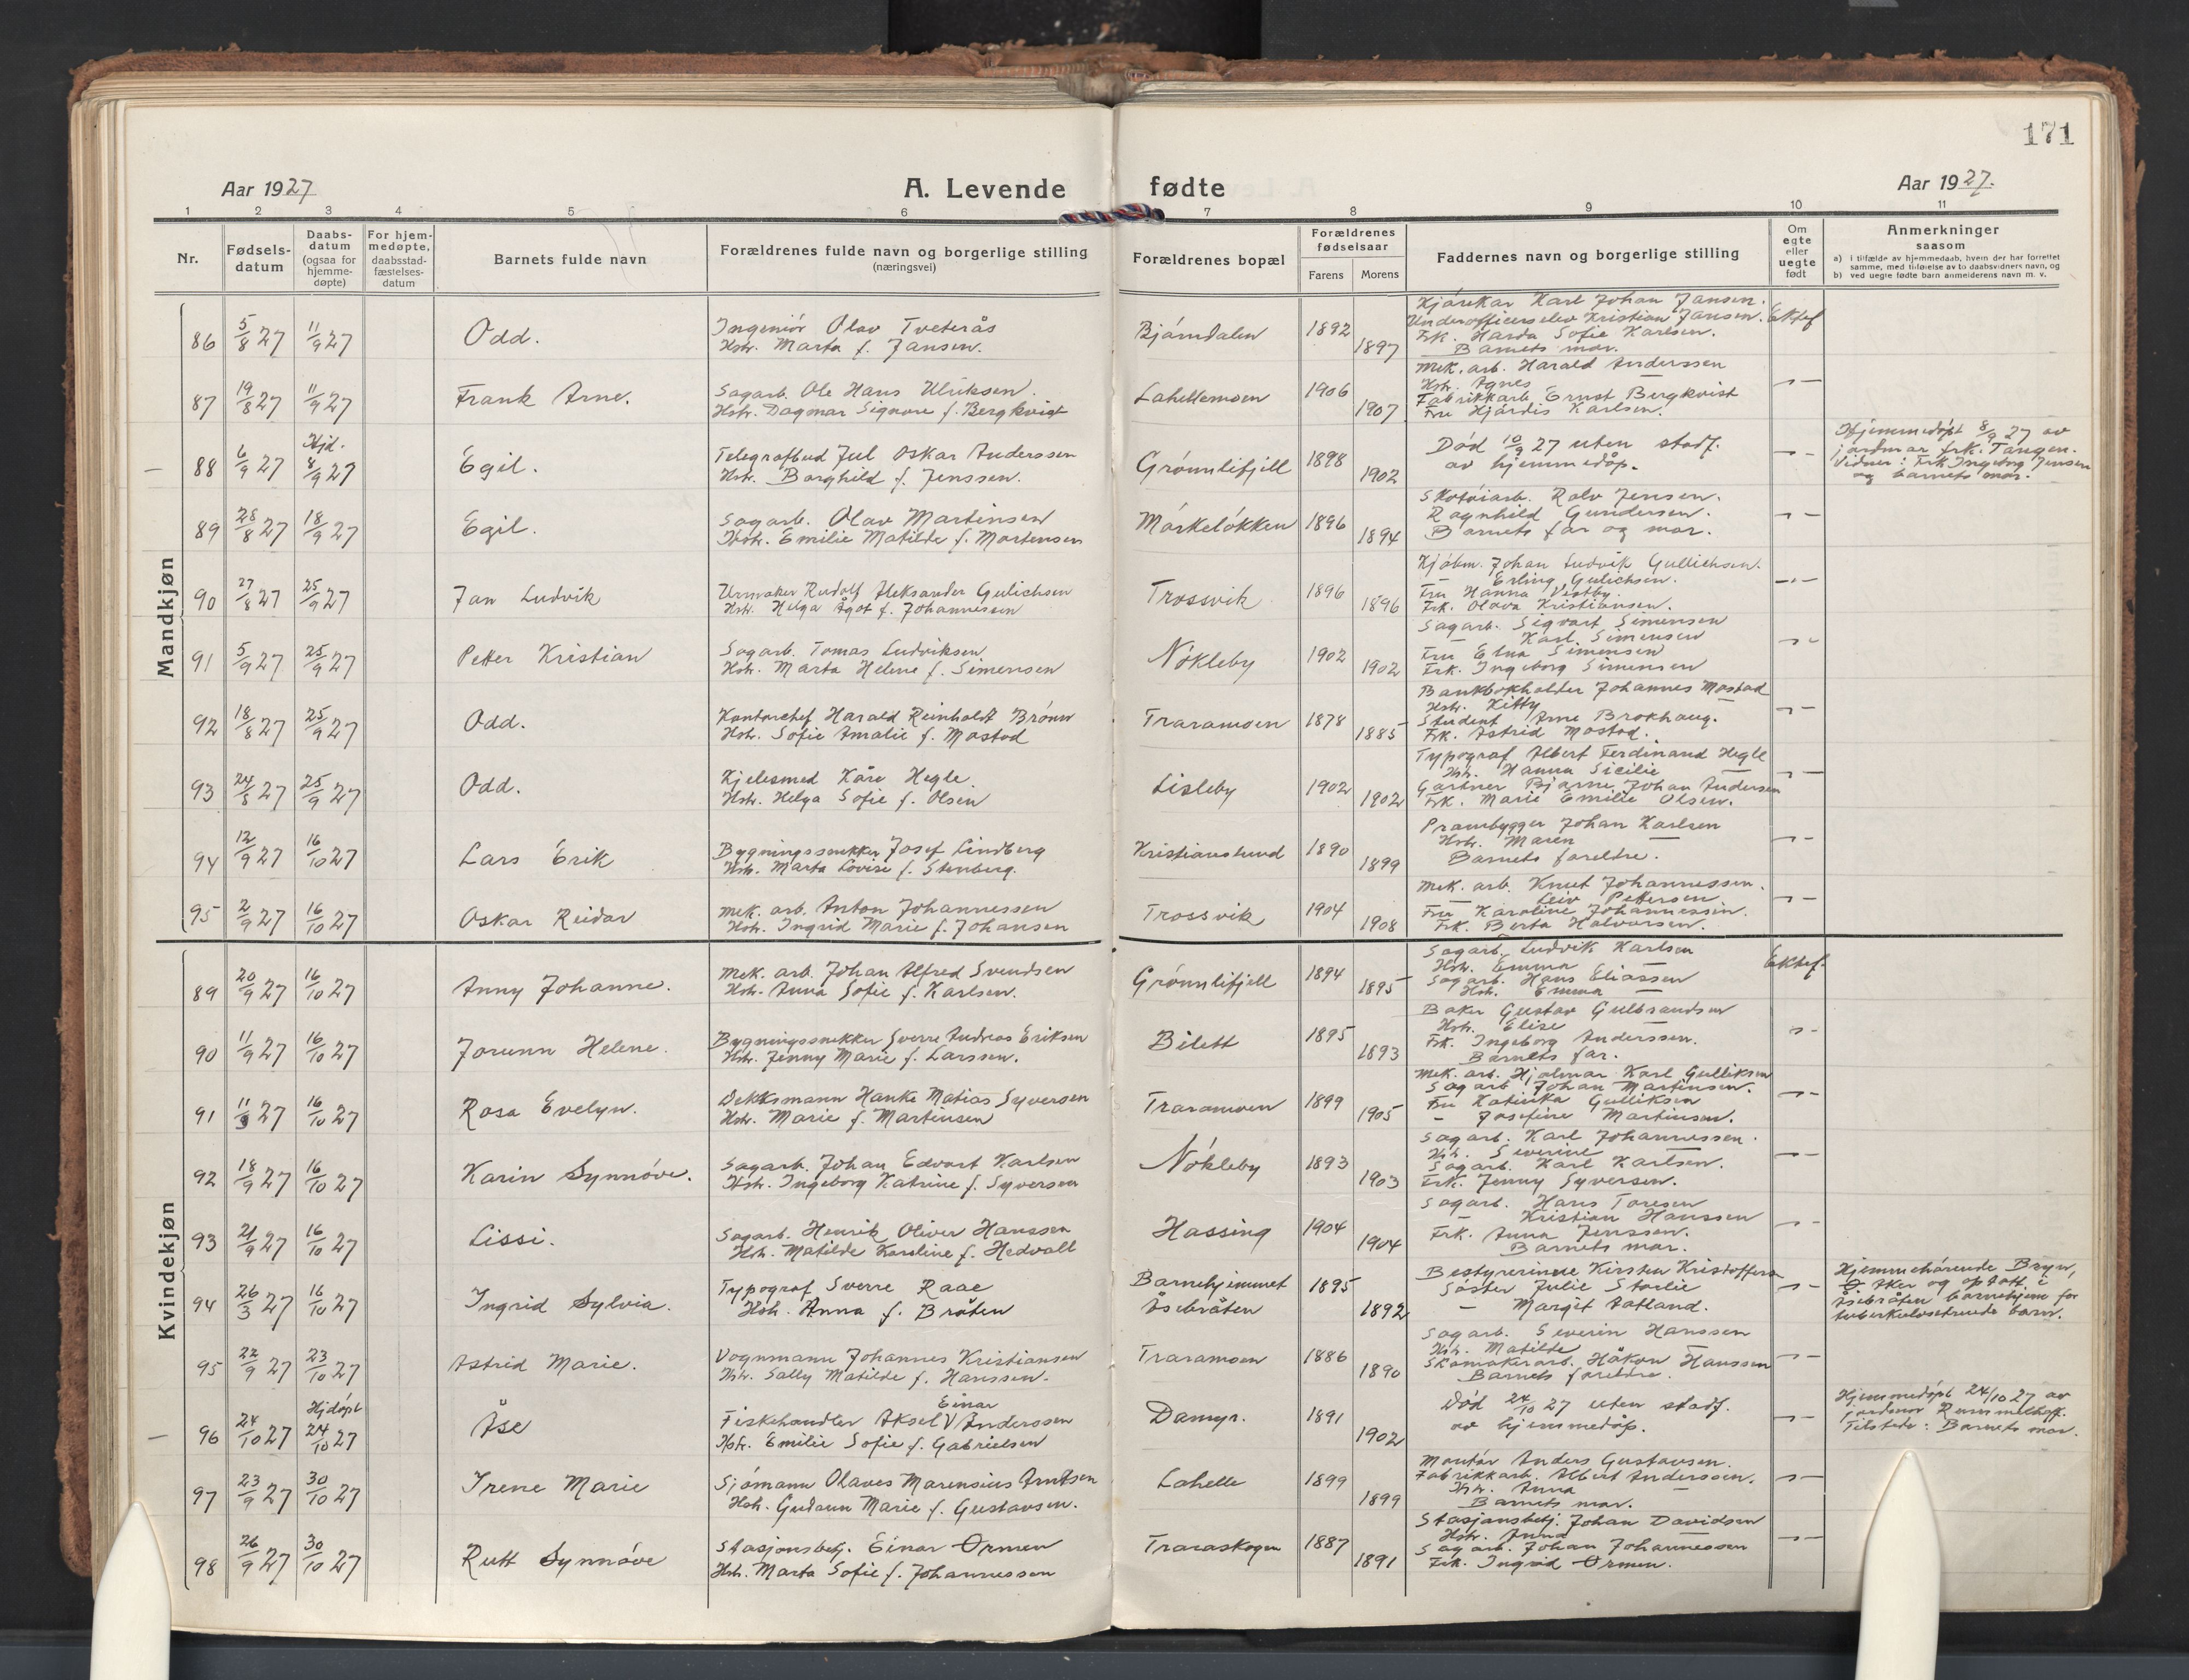 171
Aar 1927
A. Levende fødte
Aar 1927.
1 2 3 4 5 6 7 8 9 10 11
Nr.
Fødsels-
datum
Daabs-
datum
(ogsaa for
hjemme-
døpte)
For hjem-
medøpte,
daabsstad-
fæstelses-
datum
Barnets fulde navn
Forældrenes fulde navn og borgerlige stilling
(næringsvei)
Forældrenes bopæl
Forældrenes
fødselsaar
Farens Morens
Faddernes navn og borgerlige stilling
Om
egte
eller
uegte
født
Anmerkninger
saasom
a) i tilfælde av hjemmedaab, hvem der har forrettet
samme, med tilføielse av to daabsvidners navn, og
b) ved uegte fødte barn anmelderens navn m. v.
Mandkjøn
86 5/8 27 11/9 27 Odd.
Ingeniör Olav Tveterås
Hstr. Marta f. Jansen.
Bjórndalen 1892 1897
Kjórekar Karl Johan Jansen.
Underofficerselev Kristian Jansen.
Frk. Harda Sofie Karlsen.
Barnets mor.
Ektef
87 19/8 27 11/9 27 Frank Arne.
Sagarb. Ole Hans Ulriksen.
Hstr. Dagmar Signore f. Bergkvist
Lahellemoen 1906 1907
Mek. arb. Harald Anderssen
Hstr. Agnes —
Fabrikkarb. Ernst Bergkvist
Fru Hjördis Karlsen.
— 88 6/9 27 Hjd. 8/9 27 Egil.
Telegrafbud Jul Oskar Anderssen
Hstr. Borghild f. Jenssen.
Grónnlifjell 1898 1902
Död 10/9 27 uten stadf.
av hjemmedåp.
Hjemmedöpt 8/9 27 av
jordmor frk. Tangen.
Vidner: Frk. Ingeborg Jensen
og barnets mor.
89 28/8 27 18/9 27 Egil.
Sagarb. Olav Martinsen
Hstr. Emilie Matilde f. Mortensen
Mórkelókken 1896 1894
Skotóiarb. Rolv Jensen.
Ragnhild Gundersen.
Barnets far og mor.
90 27/8 27 25/9 27 Jan Ludvik
Urmaker Rudolf Aleksander Gulichsen
Hstr. Helga Ågot f. Johannessen
Trossvik 1896 1896
Kjóbm. Johan Ludvik Gullichsen.
— Erling Gulichsen.
Fru Hanna Vestby.
Frk. Olava Kristiansen.
91 5/9 27 25/9 27 Petter Kristian
Sagarb. Tomas Ludviksen
Hstr. Marta Helene f. Simensen
Nókleby 1902 1902
Sagarb. Sigvart Simensen
— Karl Simensen
Fru Elna Simensen
Frk. Ingeborg Simensen
92 18/8 27 25/9 27 Odd.
Kontorchef Harald Reinholdt Brónn
Hstr. Sofie Amalie f. Mostad
Traramoen 1878 1885
Bankbokholder Johannes Mostad
Hstr. Kitty —
Student Arne Brokhaug.
Frk. Astrid Mostad.
93 24/8 27 25/9 27 Odd.
Kjelesmed Kåre Hegle.
Hstr. Helga Sofie f. Olsen
Lisleby 1902 1902
Typograf Albert Ferdinand Hegle
Hstr. Hanna Sicilie —
Gartner Bjarne Johan Andersen
Frk. Marie Emilie Olsen.
94 12/9 27 16/10 27 Lars Erik
Bygningssnekker Josef Lindberg
Hstr. Marta Lovise f. Stenberg.
Kristianslund 1890 1899
Prambygger Johan Karlsen
Hstr. Maren —
Barnets foreldre.
95 2/9 27 16/10 27 Oskar Reidar
Mek. arb. Anton Johannessen
Hstr. Ingrid Marie f. Johansen
Trossvik 1904 1908
Mek. arb. Knut Johannessen.
— Leiv Pettersen
Fru Karoline Johannessen.
Frk. Berta Halvorsen.
Kvindekjøn
89 20/9 27 16/10 27 Anny Johanne.
Mek. arb. Johan Alfred Svendsen
Hstr. Anna Sofie f. Karlsen.
Grónnlifjell 1894 1895
Sagarb. Ludvik Karlsen
Hstr. Emma —
Sagarb. Hans Eliassen
Hstr. Emma —
Ektef.
90 11/9 27 16/10 27 Jorunn Helene.
Bygningssnekker Sverre Andreas Eriksen
Hstr. Jenny Marie f. Larssen.
Bilett 1895 1893
Baker Gustav Gulbrandsen
Hstr. Elise —
Frk. Ingeborg Anderssen.
Barnets far.
91 11/9 27 16/10 27 Rosa Evelyn.
Dekksmann Hanke Matias Syversen
Hstr. Marie f. Martinsen
Traramoen 1899 1905
Mek. arb. Hjalmar Karl Gulliksen
Sagarb. Johan Martinsen.
Fru Katinka Gulliksen
— Josefine Martinsen.
92 18/9 27 16/10 27 Karin Synnóve.
Sagarb. Johan Edvart Karlsen
Hstr. Ingeborg Katrine f. Syversen
Nókleby 1893 1903
Sagarb. Karl Johannessen.
Hstr. Severine —
Sagarb. Karl Karlsen.
Frk. Jenny Syversen.
93 21/9 27 16/10 27 Lissi.
Sagarb. Henrik Oliver Hanssen
Hstr. Matilde Karoline f. Hedvall
Hassing 1904 1904
Sagarb. Hans Toresen
— Kristian Hanssen
Frk. Anna Jenssen.
Barnets mor.
94 26/3 27 16/10 27 Ingrid Sylvia.
Typograf Sverre Raae
Hstr. Anna f. Bråten
Barnehjemmet
Åsebråten 1895 1892
Bestyrerinde Kirsten Kristoffersen
Sóster Julie Storlie
— Margit Aatland.
Hjemmehórende Bryn,
Ö. Aker og optatt i
Åsebråten barnehjem for
tuberkulosetruede barn.
95 22/9 27 23/10 27 Astrid Marie.
Vognmann Johannes Kristiansen
Hstr. Sally Matilde f. Hanssen.
Traramoen 1886 1890
Sagarb. Severin Hanssen
Hstr. Matilde —
Skomakerarb. Håkon Hanssen
Barnets foreldre.
— 96 24/10 27 Hjdópt 24/10 27 Åse
Einar
Fiskehandler Aksel V Anderssen
Hstr. Emilie Sofie f. Gabrielsen
Damyr. 1891 1902
Död 24/10 27 uten stadf.
av hjemmedåp.
Hjemmedöpt 24/10 27 av
jordmor Rummelhoff.
Tilstede: Barnets mor.
97 23/9 27 30/10 27 Irene Marie
Sjómann Olaves Marensius Arntsen
Hstr. Gudrun Marie f. Gustavsen.
Lahelle 1899 1899
Montör Anders Gustavsen.
Fabrikkarb. Albert Anderssen.
Hstr. Anna —
Barnets mor.
98 26/9 27 30/10 27 Rutt Synnóve
Stasjonsbetj. Einar Ormen
Hstr. Marta Sofie f. Johannessen
Traraskogen 1887 1891
Stasjonsbetj. Johan Davidsen
Hstr. Anna —
Sagarb. Johan Johannessen
Frk. Ingrid Ormen.